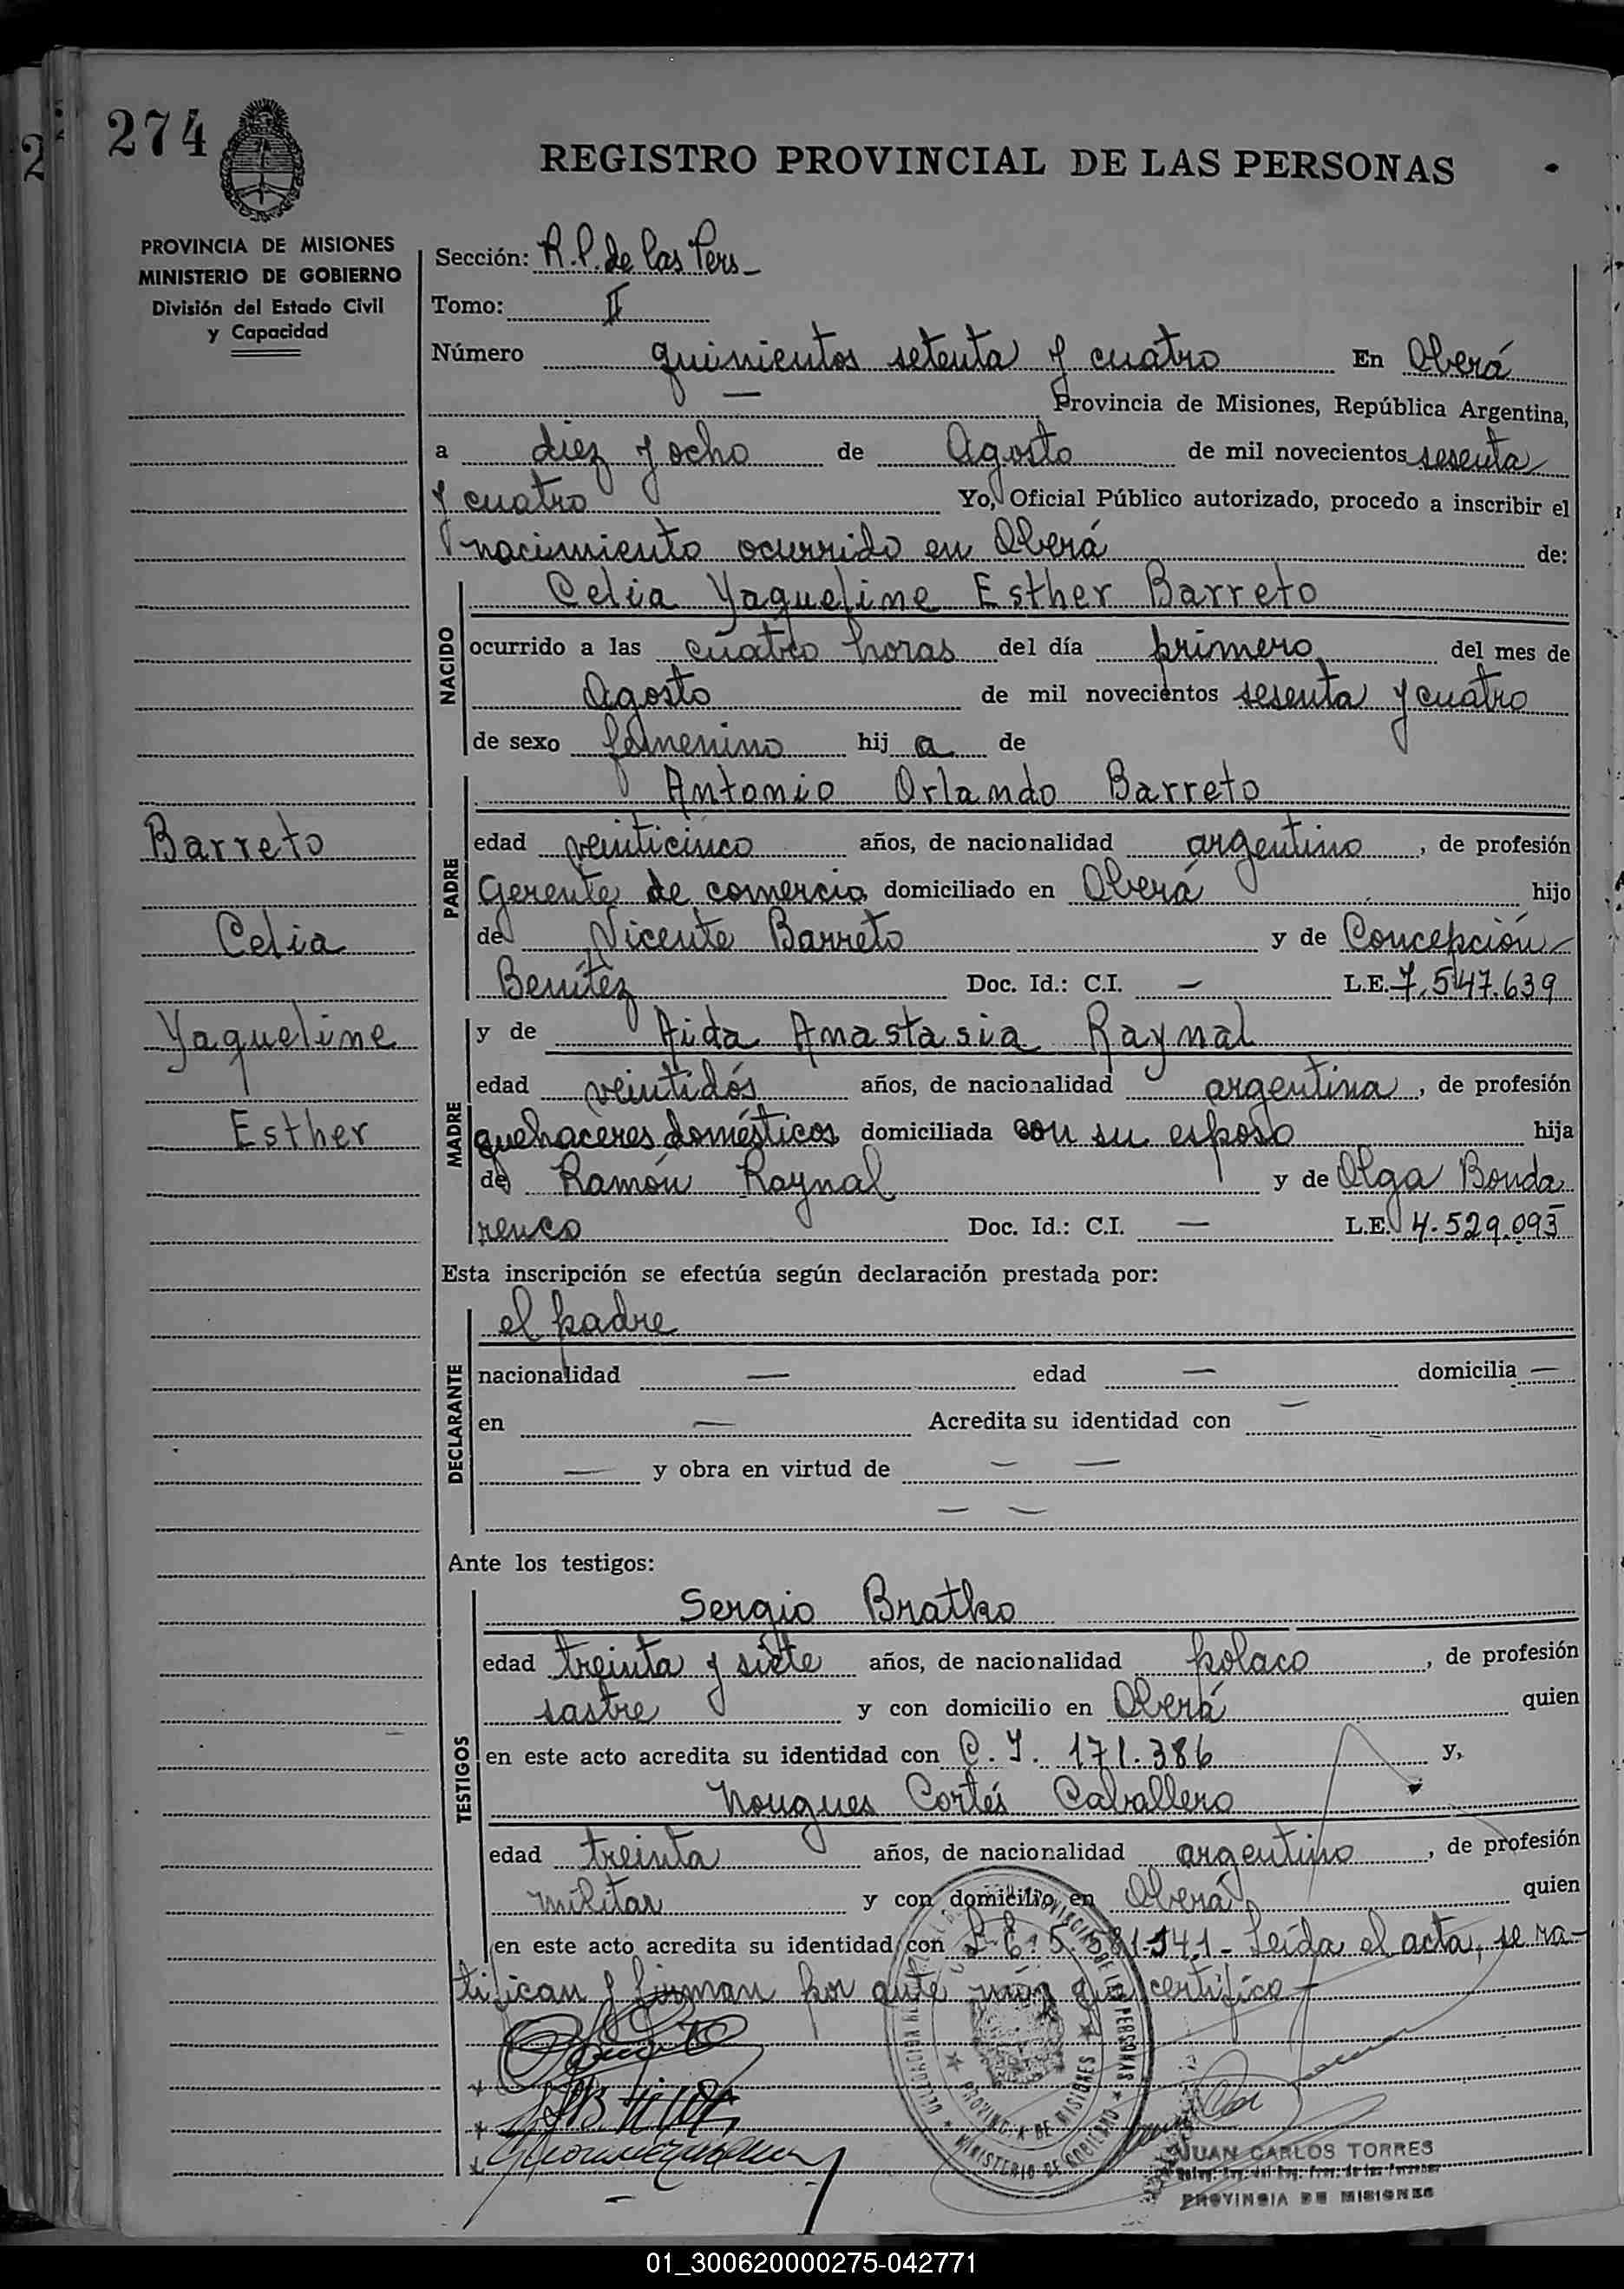 274
REGISTRO PROVINCIAL DE LAS PERSONAS
PROVINCIA DE MISIONES
MINISTERIO DE GOBIERNO
División del Estado Civil
y Capacidad
Sección: R.P. de las Pers-
Tomo: II
Número quinientos setenta y cuatro En Oberá
— Provincia de Misiones, República Argentina,
a diez y ocho de Agosto de mil novecientos sesenta
y cuatro Yo, Oficial Público autorizado, procedo a inscribir el
nacimiento ocurrido en Oberá de:
NACIDO
Celia Yaqueline Esther Barreto
ocurrido a las cuatro horas del día primero del mes de
Agosto de mil novecientos sesenta y cuatro
de sexo femenino hij a de
PADRE
Antonio Orlando Barreto
edad veinticinco años, de nacionalidad argentino, de profesión
Gerente de comercio domiciliado en Oberá hijo
de Vicente Barreto y de Concepción
Benítez Doc. Id.: C.I. — L.E. 7.547.639
Barreto
Celia
Yaqueline
Esther
MADRE
y de Aida Anastasia Raynal
edad veintidós años, de nacionalidad argentina, de profesión
quehaceres domésticos domiciliada con su esposo hija
de Ramón Raynal y de Olga Bonda
renco Doc. Id.: C.I. — L.E. 4.529.093
Esta inscripción se efectúa según declaración prestada por:
DECLARANTE
el padre
nacionalidad — edad — domicilia —
en — Acredita su identidad con —
— y obra en virtud de — —
— —
Ante los testigos:
TESTIGOS
Sergio Bratko
edad treinta y siete años, de nacionalidad polaco, de profesión
sastre y con domicilio en Oberá quien
en este acto acredita su identidad con C.I. 171.386 y,
Nougues Cortés Caballero
edad treinta años, de nacionalidad argentino, de profesión
militar y con domicilio en Oberá quien
en este acto acredita su identidad con L.E. 5.581.141- Leída el acta, se ra-
tifican y firman por ante mi que certifico-
PROVINCIA DE MISIONES
MINISTERIO DE GOBIERNO
JUAN CARLOS TORRES
PROVINCIA DE MISIONES
01_300620000275-042771